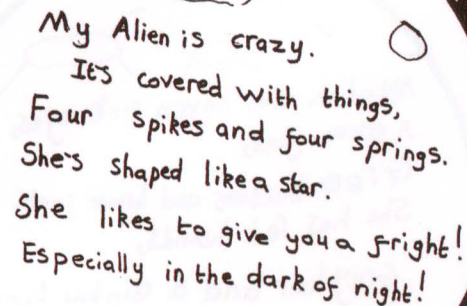 My Alien is crazy.
It's covered with things,
Four spikes and four springs.
She's shaped like a star.
She likes to give you a fright!
Especially in the dark of night!